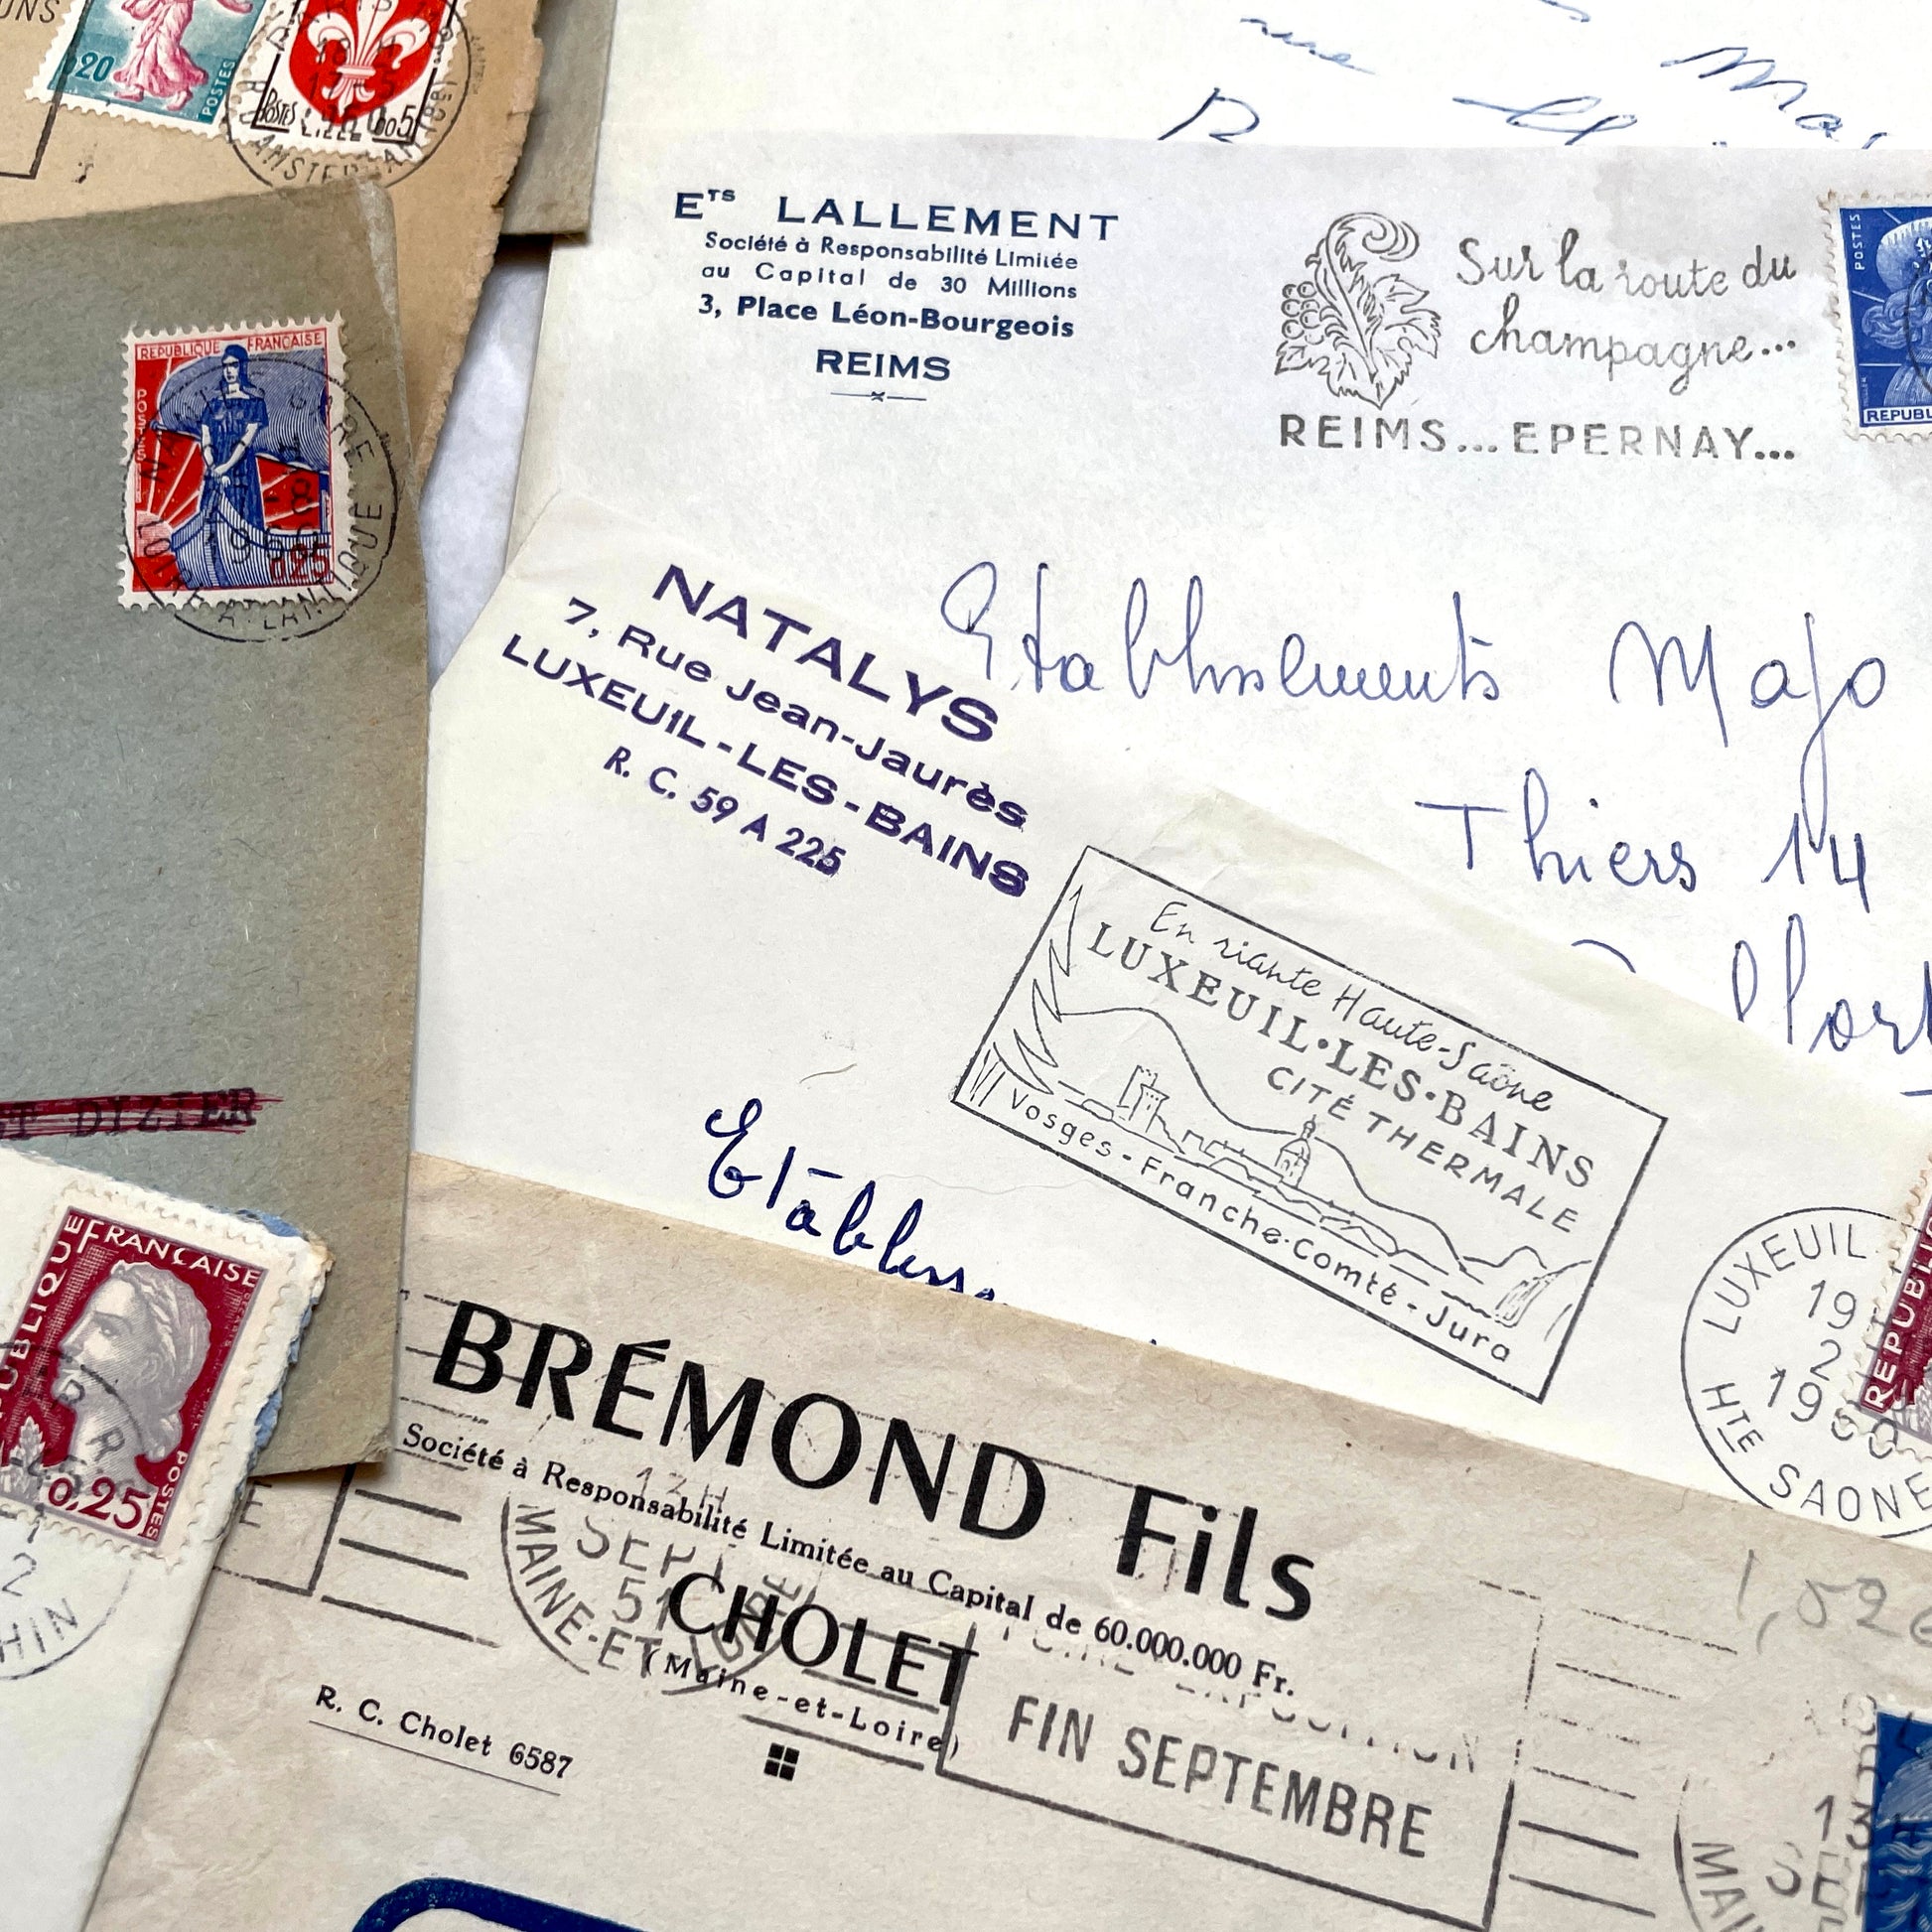 0,20
POSTES
POSTES
LILLE
0,05
R. AMSTERDAM (8e)
ETS LALLEMENT
Société à Responsabilité Limitée
au Capital de 30 Millions
3, Place Léon-Bourgeois
REIMS
Sur la route du
champagne...
REIMS... EPERNAY...
POSTES
REPUBL
REPUBLIQUE FRANÇAISE
POSTES
0,25
GARE
LOIRE ATLANTIQUE
NATALYS
7, Rue Jean-Jaurès
LUXEUIL-LES-BAINS
R. C. 59 A 225
Etablissements Majo
Thiers 14
En riante Haute-Saône
LUXEUIL•LES•BAINS
CITÉ THERMALE
Vosges-Franche-Comté-Jura
ST DIZIER
Etabliss
LUXEUIL
19
2
HTE SAONE
REPUBLI
UBLIQUE FRANÇAISE
0,25
POSTES
BRÉMOND Fils
Société à Responsabilité Limitée au Capital de 60.000.000 Fr.
CHOLET
(Maine-et-Loire)
R. C. Cholet 6587
SEPT
51
MAINE-ET-LOIRE
EXPOSITION
FIN SEPTEMBRE
13